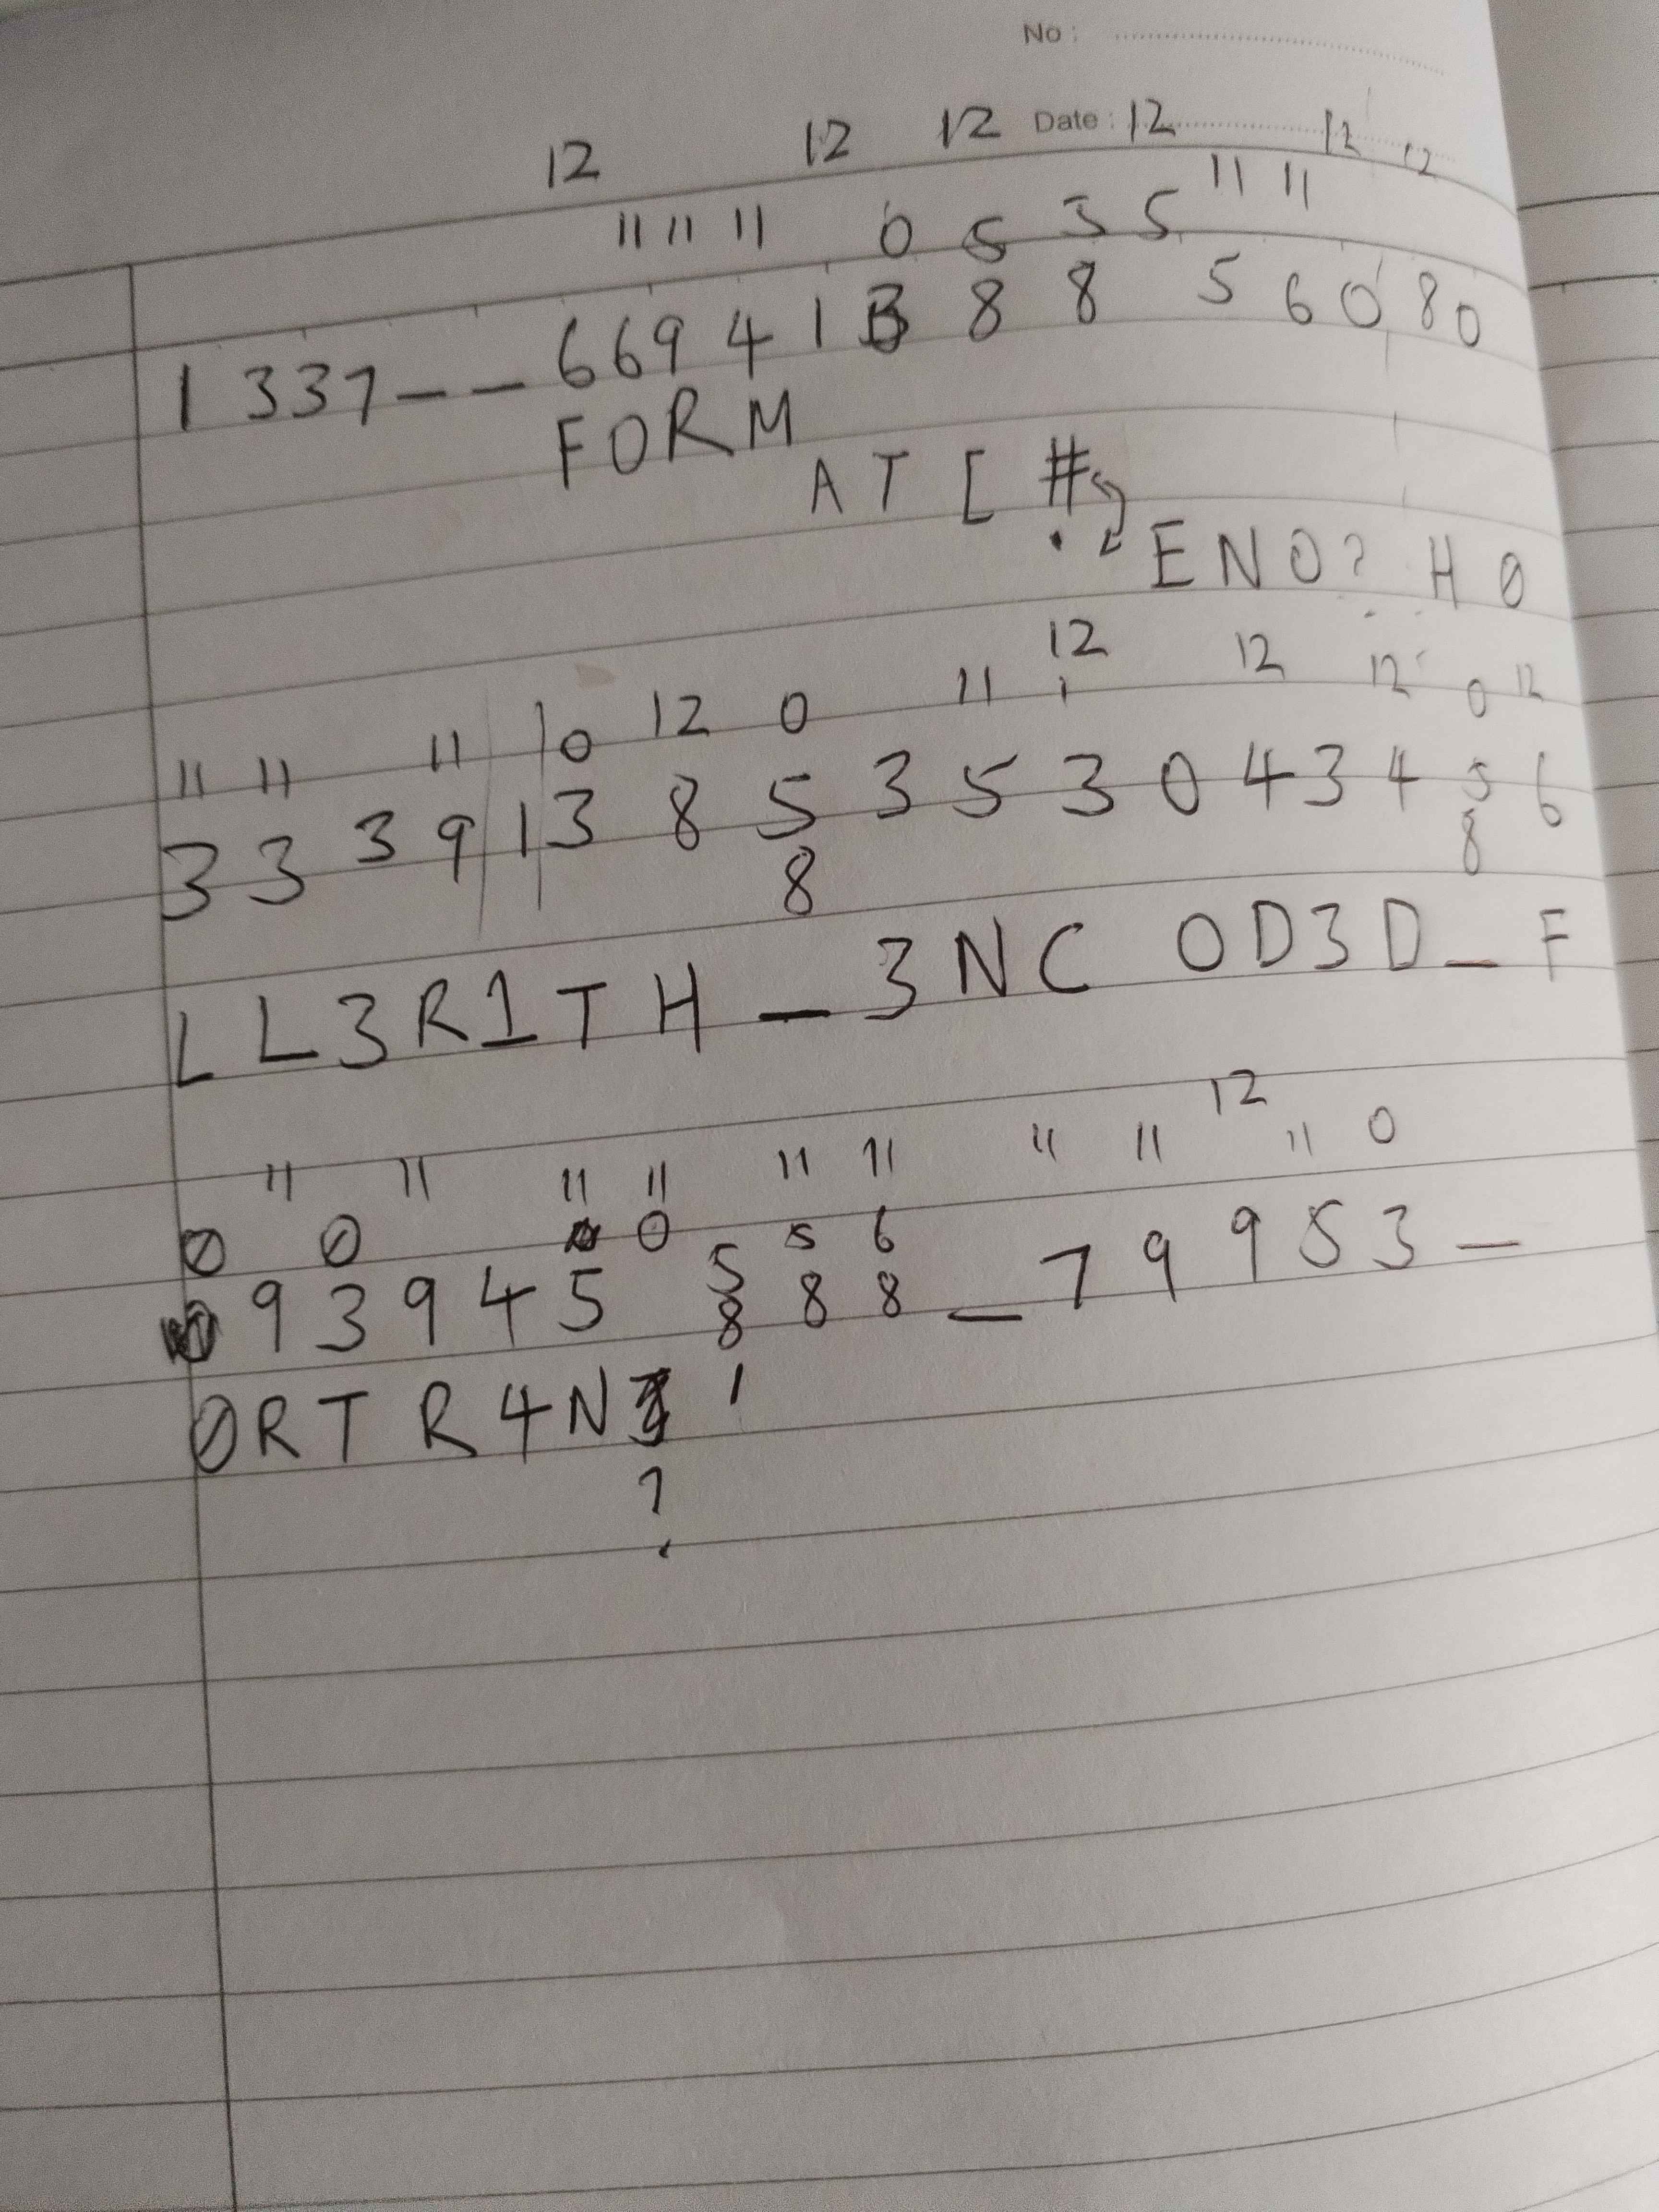 No :
Date :
12 12 12 12 12 12
11 11 11 0 5 3 5 11 11
1 3 3 7 _ _ 6 6 9 4 1 3 8 8 5 6 0 8 0
F O R M
A T [ #
E N O ? H 0
12 12 12 0 12
11 11 11 0 12 0 11
3 3 3 9 1 3 8 5 3 5 3 0 4 3 4 5 6
8 8
L L 3 R 1 T H _ 3 N C 0 D 3 D _ F
12
11 11 11 11 11 11 11 11 11 0
0 0 0 5 5 6
9 3 9 4 5 8 8 8 _ 7 9 9 5 3 _
0 R T R 4 N
?